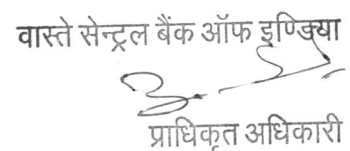 वास्ते सेन्ट्रल बैंक ऑफ इण्डिया
प्राधिकृत अधिकारी